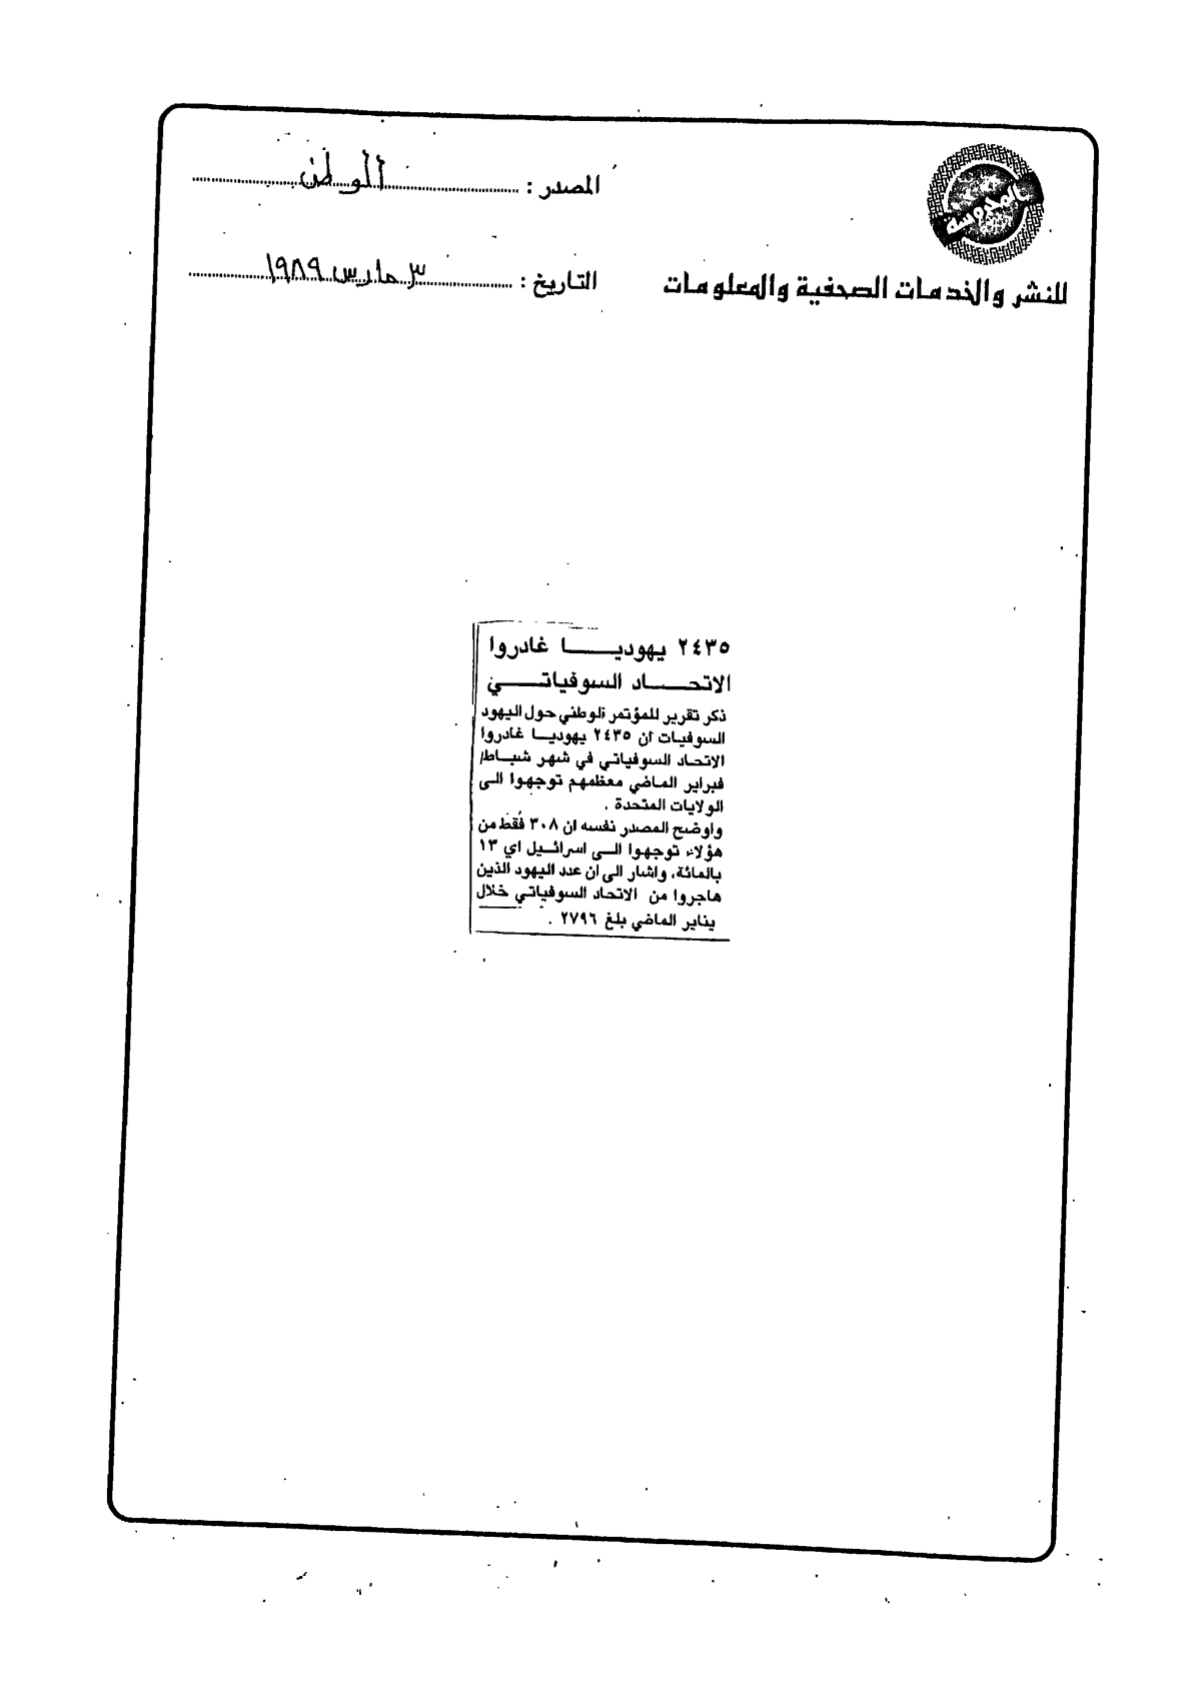 المحروسة
للنشر والخدمات الصحفية والمعلومات
المصدر : الوطن
التاريخ : ٣ مارس ١٩٨٩
٢٤٣٥ يهوديــــا غادروا
الاتحــــاد السوفياتــــي
ذكر تقرير للمؤتمر الوطني حول اليهود
السوفيات ان ٢٤٣٥ يهوديــا غادروا
الاتحاد السوفياتي في شهر شبــاط/
فبراير الماضي معظمهم توجهوا الى
الولايات المتحدة .
واوضح المصدر نفسه ان ٣٠٨ فقط من
هؤلاء توجهوا الــى اسرائــيل اي ١٣
بالمائة، واشار الى ان عدد اليهود الذين
هاجروا من الاتحاد السوفياتي خلال
يناير الماضي بلغ ٢٧٩٦ .